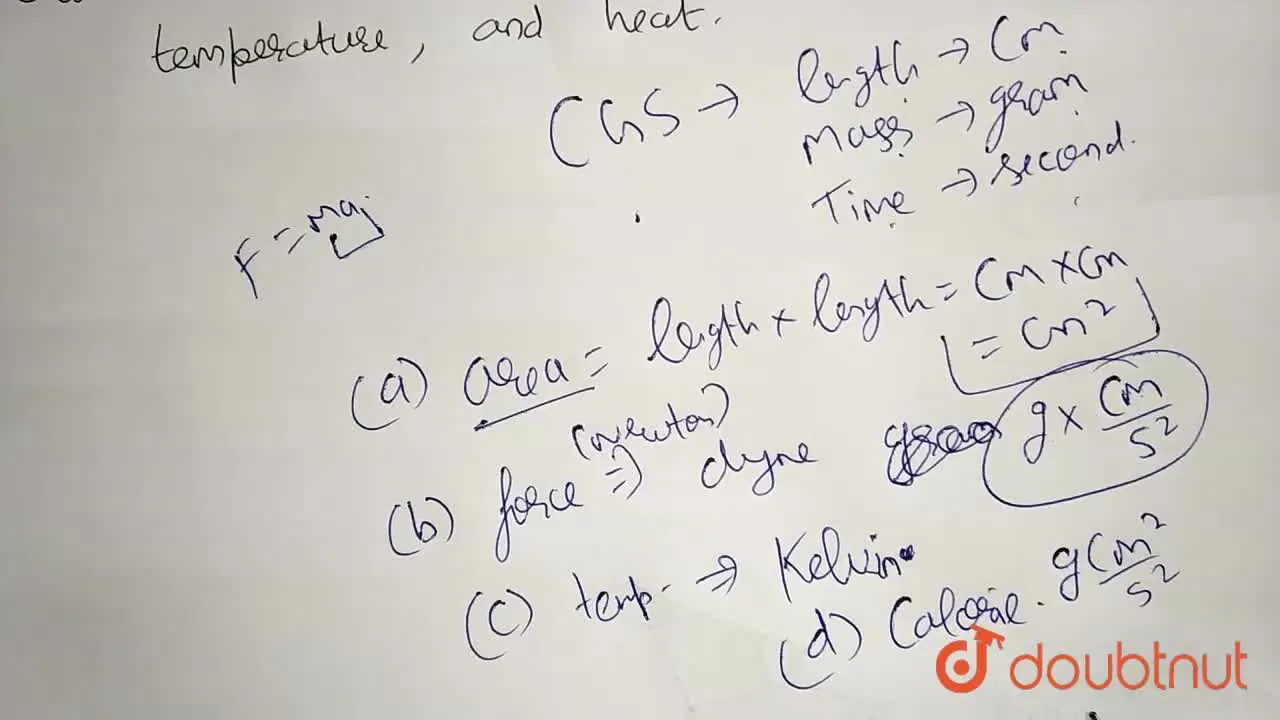 temperature, and heat.
CGS → length → Cm
Mass → gram
Time → second.
F = ma
(a) area = length × length = Cm × Cm
= Cm²
(Newton)
(b) force ⇒ dyne g × Cm/s²
(c) temp. ⇒ Kelvin
(d) Calorie. g Cm²/s²
doubtnut